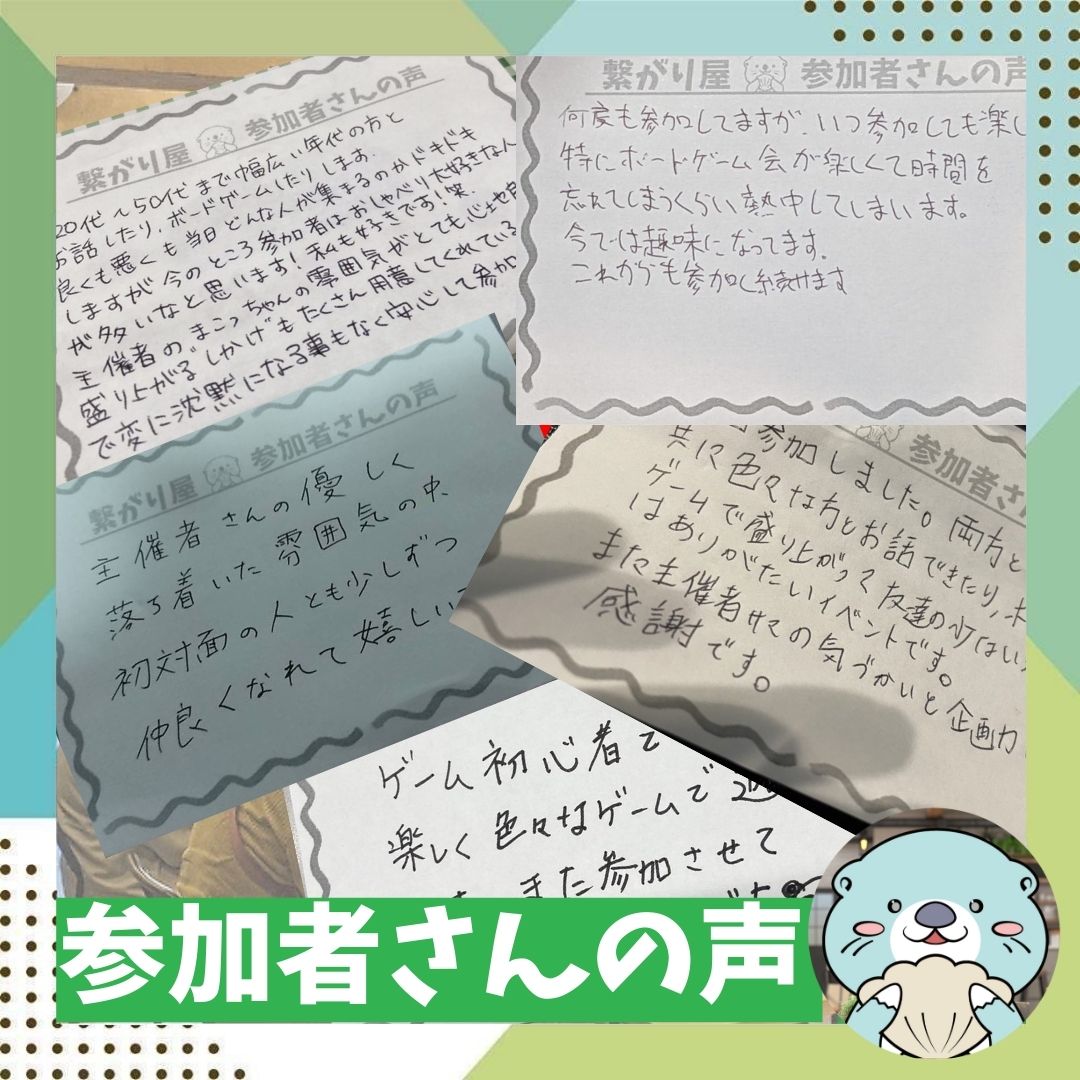 繋がり屋 参加者さんの声
20代〜50代まで幅広い年代の方と
お話したり、ボードゲームしたりします。
良くも悪くも当日どんな人が集まるのかドキドキ
しますが今のところ参加者はおしゃべり大好きな人
が多いなと思います!私も好きです!笑
主催者のまこっちゃんの雰囲気がとても
盛り上がる"しかけ"もたくさん用意してくれている
で変に沈黙になる事もなく安心して参加
繋がり屋 参加者さんの声
何度も参加してますが、いつ参加しても楽し
特にボードゲーム会が楽しくて時間を
忘れてしまうくらい熱中してしまいます。
今では趣味になってます。
これからも参加し続けます
繋がり屋 参加者さんの声
主催者さんの優しく
落ち着いた雰囲気の中、
初対面の人とも少しずつ
仲良くなれて嬉しい
参加者さ
参加しました。両方と
共に色々な方とお話できたり、ボ
ゲームで盛り上がって友達の少ない
はありがたいイベントです。
また主催者サマの気づかいと企画力
感謝です。
ゲーム初心者で
楽しく色々なゲームで遊
また参加させて
参加者さんの声